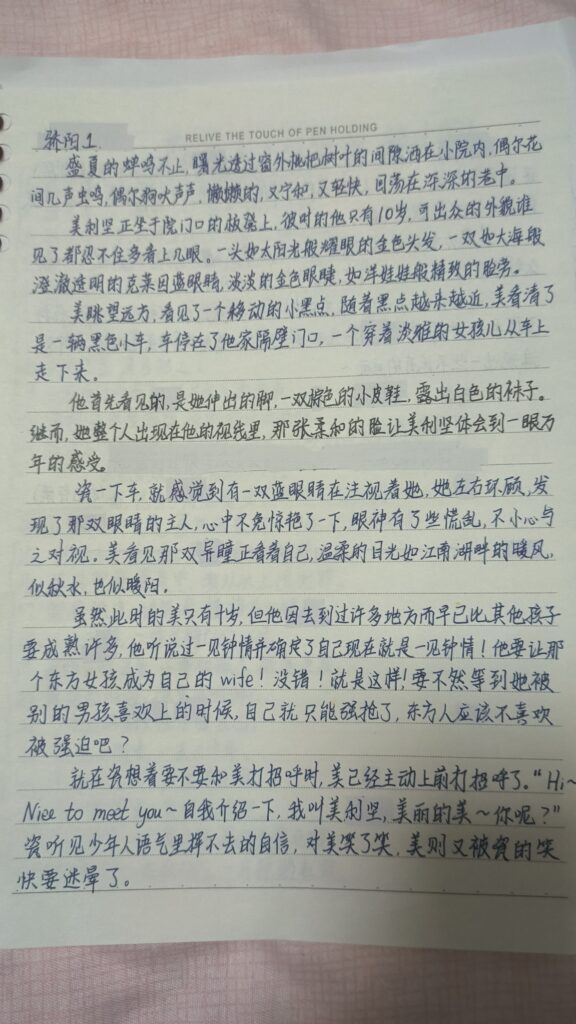 RELIVE THE TOUCH OF PEN HOLDING
骄阳1.
盛夏的蝉鸣不止,曙光透过窗外枇杷树叶的间隙洒在小院内,偶尔花
间几声虫鸣,偶尔狗吠声声,懒懒的,又宁和,又轻快,回荡在深深的巷中。
美利坚正坐于院门口的板凳上,彼时的他只有10岁,可出众的外貌谁
见了都忍不住多看上几眼。一头如太阳光般耀眼的金色头发,一双如大海般
澄澈透明的克莱因蓝眼睛,淡淡的金色眼睫,如洋娃娃般精致的脸旁。
美眺望远方,看见了一个移动的小黑点,随着黑点越来越近,美看清了
是一辆黑色小车,车停在了他家隔壁门口,一个穿着淡雅的女孩儿从车上
走下来。
他首先看见的,是她伸出的脚,一双棕色的小皮鞋,露出白色的袜子。
继而,她整个人出现在他的视线里,那张柔和的脸让美利坚体会到一眼万
年的感受。
瓷一下车,就感觉到有一双蓝眼睛在注视着她,她左右环顾,发
现了那双眼睛的主人,心中不免惊艳了一下,眼神有了些慌乱,不小心与
之对视。美看见那双异瞳正看着自己,温柔的目光如江南湖畔的暖风,
似秋水,也似暖阳。
虽然此时的美只有十岁,但他因去到过许多地方而早已比其他孩子
要成熟许多,他听说过一见钟情并确定了自己现在就是一见钟情!他要让那
个东方女孩成为自己的wife!没错!就是这样!要不然等到她被
别的男孩喜欢上的时候,自己就只能强抢了,东方人应该不喜欢
被强迫吧?
就在瓷想着要不要和美打招呼时,美已经主动上前打招呼了。“Hi~
Nice to meet you~自我介绍一下,我叫美利坚,美丽的美~你呢?”
瓷听见少年人语气里挥不去的自信,对美笑了笑,美则又被瓷的笑
快要迷晕了。